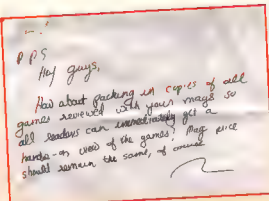 PPS
Hey guys,
How about packing in copies of all
games reviewed with your mags so
all readers can immediately get a
hands-on view of the games? Mag price
should remain the same, of course